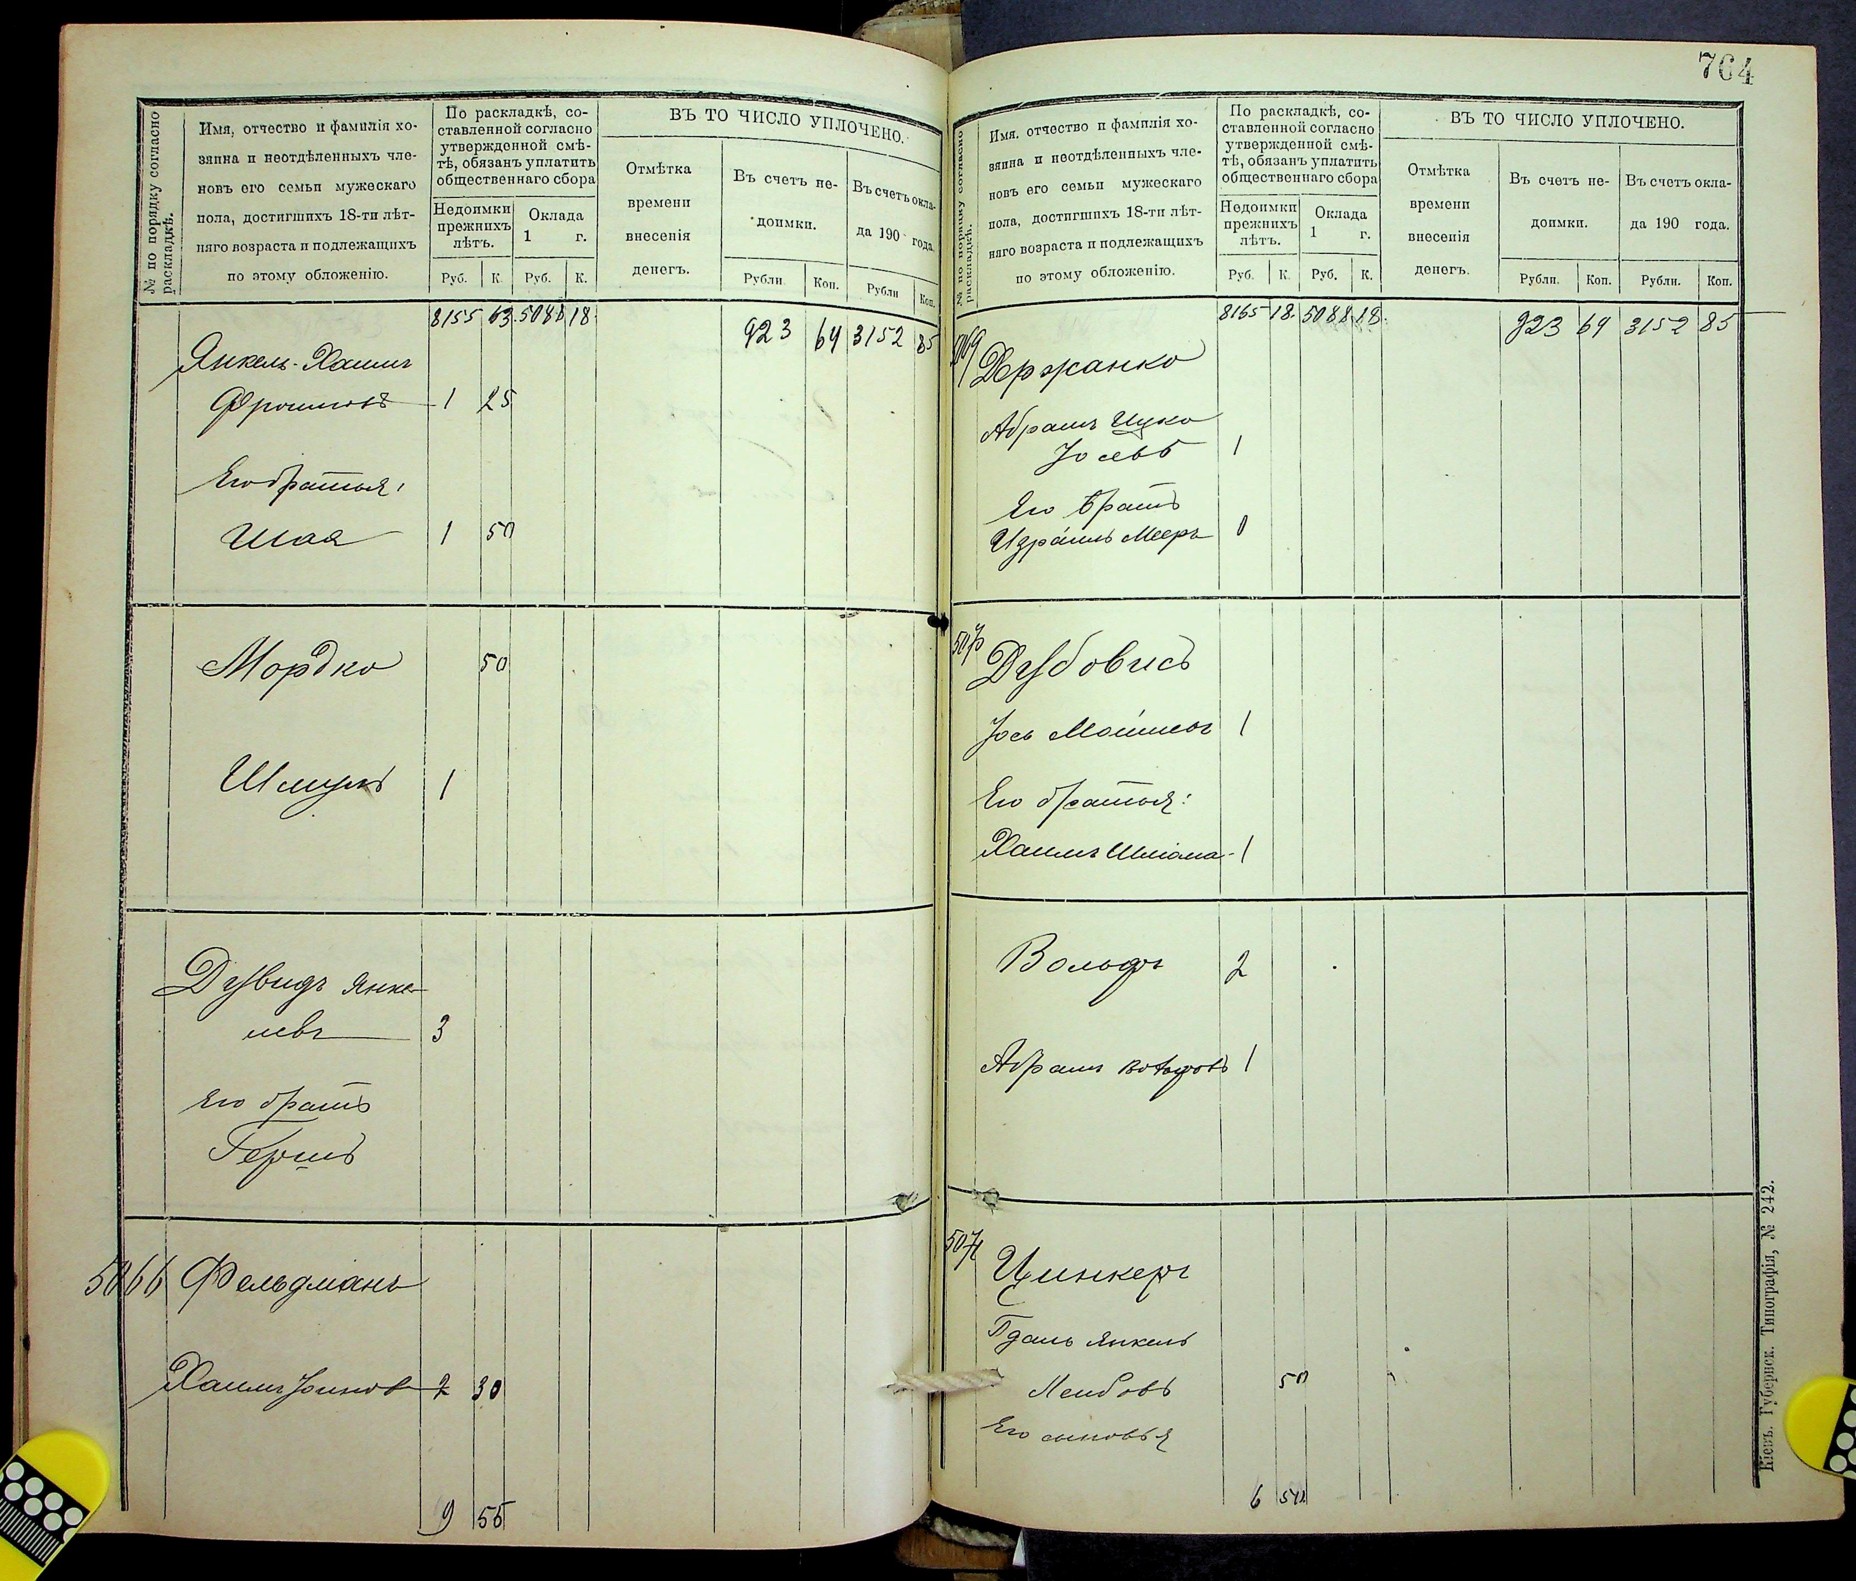 764
№ по порядку согласно раскладкѣ.
Имя, отчество и фамилія хо-
зяина и неотдѣленныхъ чле-
новъ его семьи мужескаго
пола, достигшихъ 18-ти лѣт-
няго возраста и подлежащихъ
по этому обложенію.
По раскладкѣ, со-
ставленной согласно
утвержденной смѣ-
тѣ, обязанъ уплатить
общественнаго сбора
Недоимки
прежнихъ
лѣтъ.
Оклада
1 г.
Руб. К. Руб. К.
ВЪ ТО ЧИСЛО УПЛОЧЕНО.
Отмѣтка
времени
внесенія
денегъ.
Въ счетъ не-
доимки.
Въ счетъ окла-
да 190 года.
Рубли. Коп. Рубли Коп.
8155 63 5088 18 923 64 3152 85
Янкель-Хаимъ
Фроимовъ 1 25
Его братья:
Шая 1 50
Мордко 50
Шмуль 1
Дувидъ Янке-
левъ 3
Его братъ
Гершъ
5066 Фельдманъ
Хаимъ 2 30
9 55
№ по порядку согласно раскладкѣ.
Имя, отчество и фамилія хо-
зяина и неотдѣленныхъ чле-
новъ его семьи мужескаго
пола, достигшихъ 18-ти лѣт-
няго возраста и подлежащихъ
по этому обложенію.
По раскладкѣ, со-
ставленной согласно
утвержденной смѣ-
тѣ, обязанъ уплатить
общественнаго сбора
Недоимки
прежнихъ
лѣтъ.
Оклада
1 г.
Руб. К. Руб. К.
ВЪ ТО ЧИСЛО УПЛОЧЕНО.
Отмѣтка
времени
внесенія
денегъ.
Въ счетъ не-
доимки.
Въ счетъ окла-
да 190 года.
Рубли. Коп. Рубли. Коп.
8165 18 5088 18 923 64 3152 85
Держанко
Абрамъ Ицко
Іосевъ 1
Его братъ
Израиль Мееръ 0
5070 Дубовисъ
Іось Мошковъ 1
Его братья:
Хаимъ Шлиома 1
Вольфъ 2
Абрамъ Вольфовъ 1
5071 Цинкеръ
Гдаль Янкель
Лейбовъ 50
Его сыновья
6 50
Кіевъ. Губернск. Типографія, № 242.